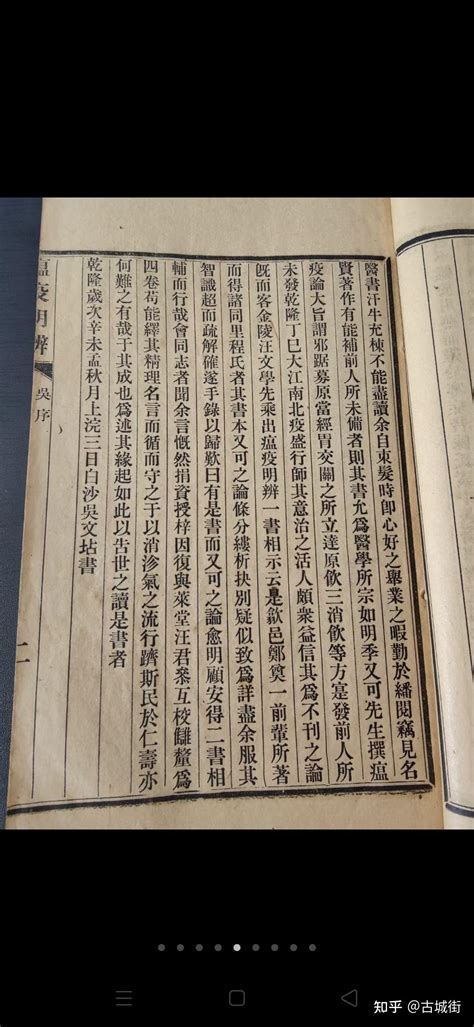 醫書汗牛充棟不能盡讀余自束髮時卽心好之舉業之暇勤於繙閱竊見名
賢著作有能補前人所未備者則其書允爲醫學所宗如明季又可先生撰瘟
疫論大旨謂邪踞募原當經胃交關之所立達原飮三消飮等方寔發前人所
未發乾隆丁巳大江南北疫盛行師其意治之活人頗衆益信其爲不刊之論
旣而客金陵汪文學先乘出瘟疫明辨一書相示云是歙邑鄭奠一前輩所著
而得諸同里程氏者其書本又可之論條分縷析抉別疑似致爲詳盡余服其
智識超而疏解確遂手錄以歸歎曰有是書而又可之論愈明顧安得二書相
輔而行哉會同志者聞余言慨然捐資授梓因復與萊堂汪君叅互校讎釐爲
四卷苟能繹其精理名言而循而守之于以消沴氣之流行躋斯民於仁壽亦
何難之有哉于其成也爲述其緣起如此以告世之讀是書者
乾隆歲次辛未孟秋月上浣三日白沙吳文坫書
瘟疫明辨
吳序
二
知乎 @古城街